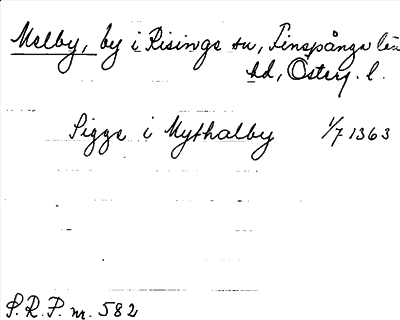 Melby, by i Risinge sn, Finspånga län
hd, Österg. l.
Sigge i Mythalby 1/7 1363
S.R.P. nr. 582